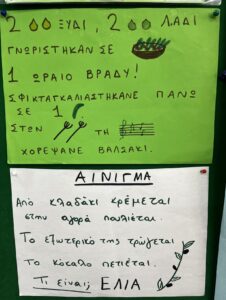 2 ΞΥΔΙ, 2 ΛΑΔΙ
ΓΝΩΡΙΣΤΗΚΑΝ ΣΕ
1 ΩΡΑΙΟ ΒΡΑΔΥ!
ΣΦΙΚΤΑΓΚΑΛΙΑΣΤΗΚΑΝΕ ΠΑΝΩ
ΣΕ 1
ΣΤΩΝ ΤΗ
ΧΟΡΕΨΑΝΕ ΒΑΛΣΑΚΙ.
ΑΙΝΙΓΜΑ
Από κλαδάκι κρέμεται
στην αγορά πουλιέται.
Το εξωτερικό της τρώγεται
Το κόκαλο πετιέται.
Τι είναι; ΕΛΙΑ